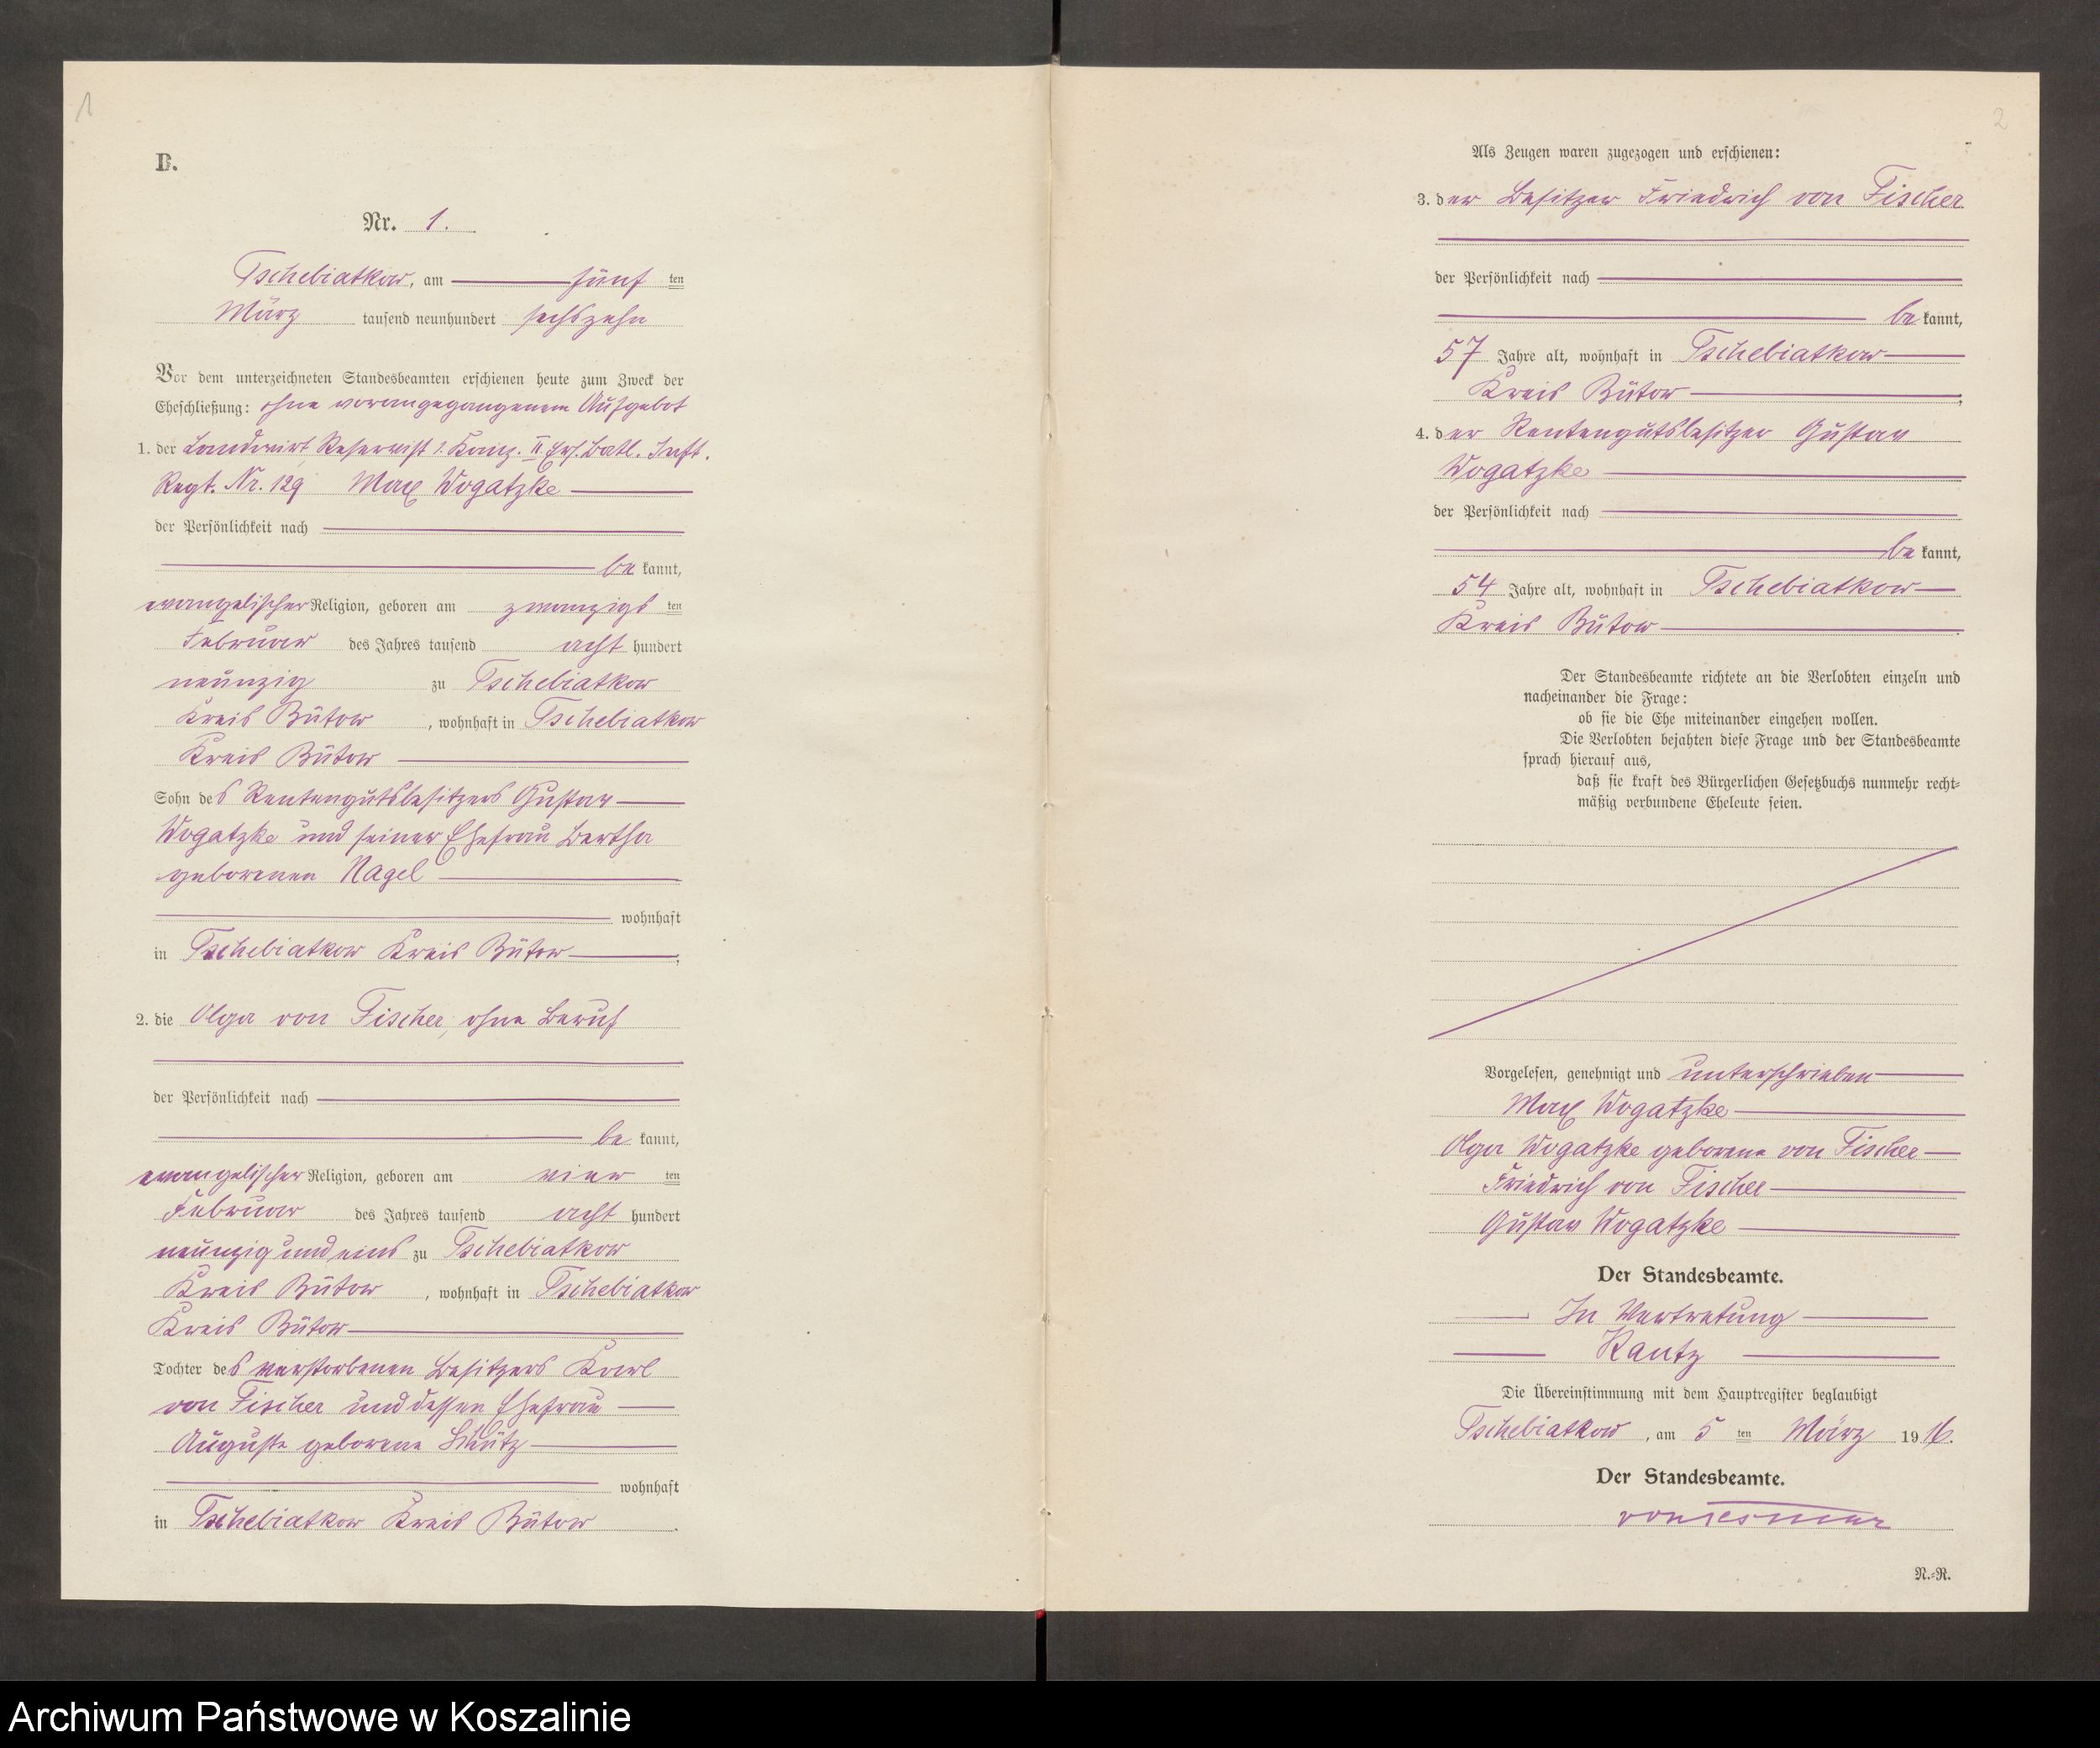 1
B.
Nr. 1.
Tschebiatkow, am fünf ten
März tausend neunhundert sechszehn
Vor dem unterzeichneten Standesbeamten erschienen heute zum Zweck der
Eheschließung: ohne vorangegangenem Aufgebot
1. der Landwirt Reservist 1. Komp. II Ers. Batl. Inft.
Regt. Nr. 129 Max Wogatzke
der Persönlichkeit nach
be kannt,
evangelischer Religion, geboren am zwanzigs ten
Februar des Jahres tausend acht hundert
neunzig zu Tschebiatkow
Kreis Bütow, wohnhaft in Tschebiatkow
Kreis Bütow
Sohn des Rentengutsbesitzers Gustav
Wogatzke und seiner Ehefrau Bertha
geborenen Nagel
wohnhaft
in Tschebiatkow Kreis Bütow;
2. die Olga von Fischer, ohne Beruf
der Persönlichkeit nach
be kannt,
evangelischer Religion, geboren am vier ten
Februar des Jahres tausend acht hundert
neunzig und eins zu Tschebiatkow
Kreis Bütow, wohnhaft in Tschebiatkow
Kreis Bütow
Tochter des verstorbenen Besitzers Karl
von Fischer und dessen Ehefrau
Auguste geborene Schütz
wohnhaft
in Tschebiatkow Kreis Bütow.
2
Als Zeugen waren zugezogen und erschienen:
3. der Besitzer Friedrich von Fischer
der Persönlichkeit nach
be kannt,
57 Jahre alt, wohnhaft in Tschebiatkow
Kreis Bütow;
4. der Rentengutsbesitzer Gustav
Wogatzke
der Persönlichkeit nach
be kannt,
54 Jahre alt, wohnhaft in Tschebiatkow
Kreis Bütow.
Der Standesbeamte richtete an die Verlobten einzeln und
nacheinander die Frage:
ob sie die Ehe miteinander eingehen wollen.
Die Verlobten bejahten diese Frage und der Standesbeamte
sprach hierauf aus,
daß sie kraft des Bürgerlichen Gesetzbuchs nunmehr recht-
mäßig verbundene Eheleute seien.
Vorgelesen, genehmigt und unterschrieben
Max Wogatzke
Olga Wogatzke geborene von Fischer
Friedrich von Fischer
Gustav Wogatzke
Der Standesbeamte.
In Vertretung
Kautz
Die Übereinstimmung mit dem Hauptregister beglaubigt
Tschebiatkow, am 5 ten März 1916.
Der Standesbeamte.
N.-R.
Archiwum Państwowe w Koszalinie